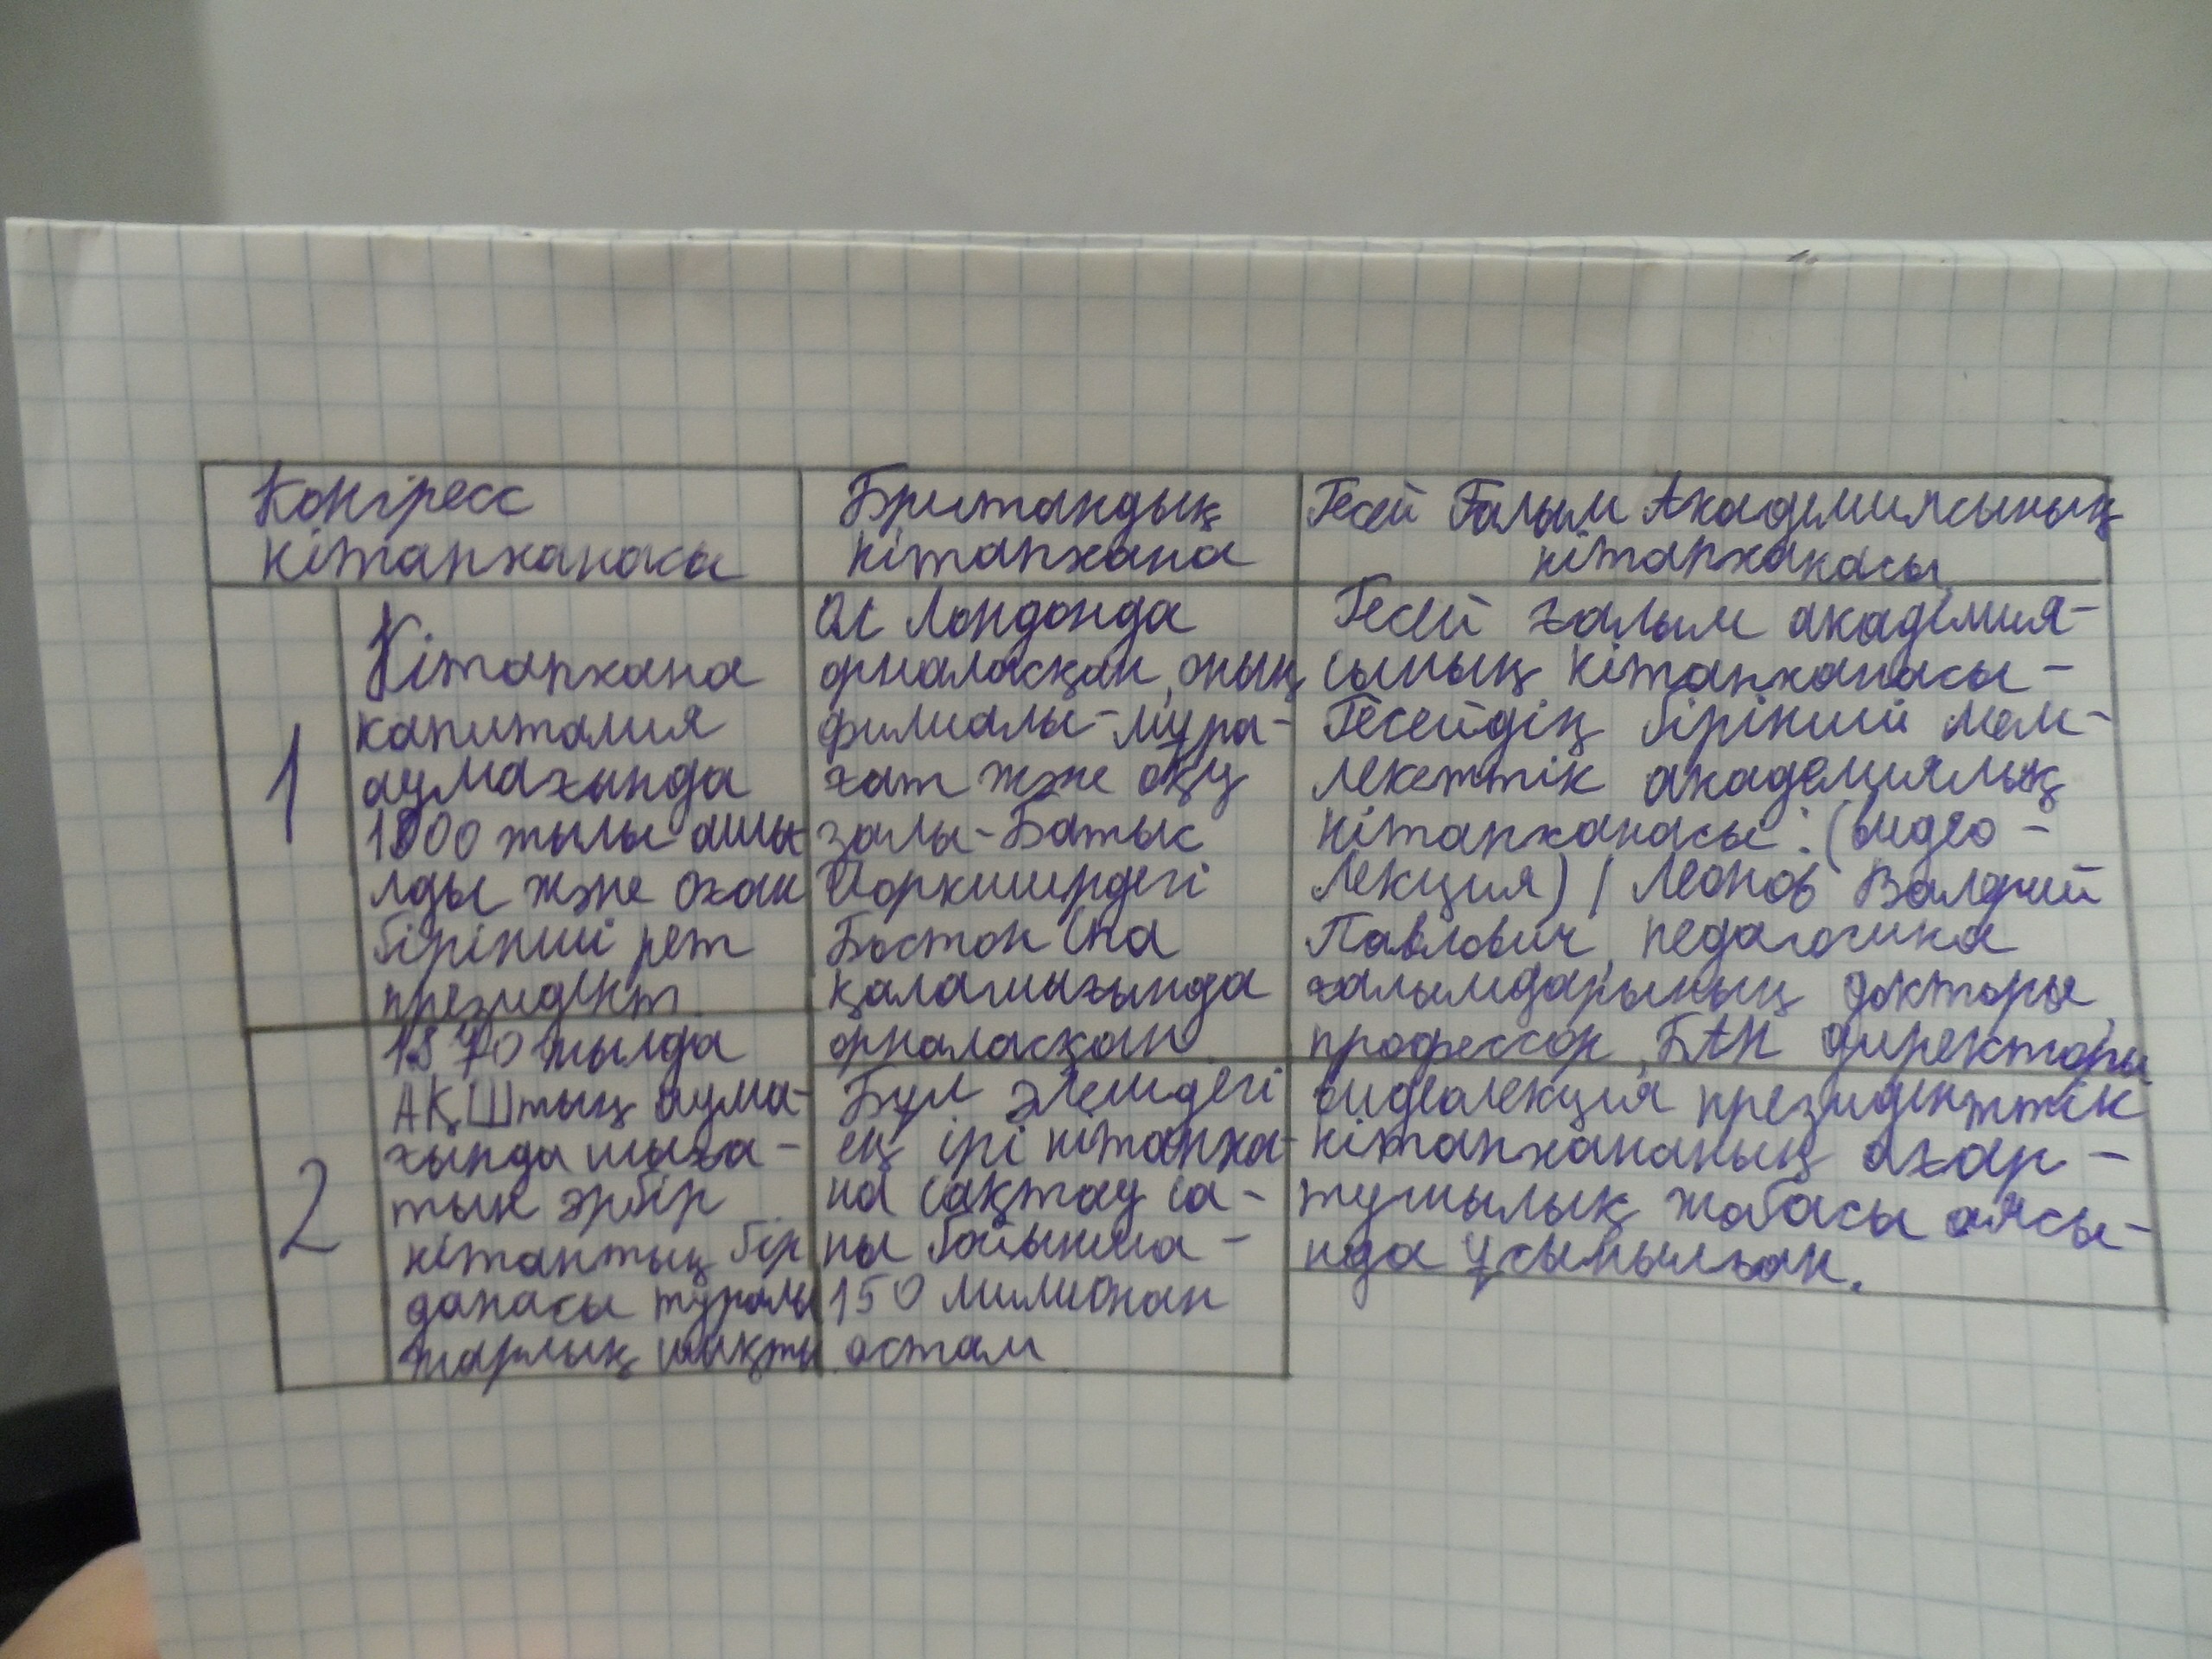 Конгресс
кітапханасы
Британдық
кітапхана
Ресей Ғалым Академиясының
кітапханасы
1
Кітапхана
капиталия
аумағында
1800 жылы ашы-
лды және оған
бірінші рет
президент
Ол Лондонда
орналасқан, оның
филиалы-мұра-
ғат және оқу
залы-Батыс
Йоркширдегі
Бостон Спа
қалашығында
орналасқан
Ресей ғалым академия-
сының кітапханасы-
Ресейдің бірінші мем-
лекеттік академиялық
кітапханасы: (видео-
лекция) / Леонов Валерий
Павлович, педагогика
ғалымдарының докторы,
профессор, БАН директоры
2
1870 жылда
АҚШтың аума-
ғында шыға-
тын әрбір
кітаптың бір
данасы туралы
жарлық шықты
Бұл әлемдегі
ең ірі кітапха-
на сақтау са-
ны бойынша-
150 милионан
астам
видеолекция президенттік
кітапхананың ағар-
тушылық жобасы аясы-
нда ұсынылған.